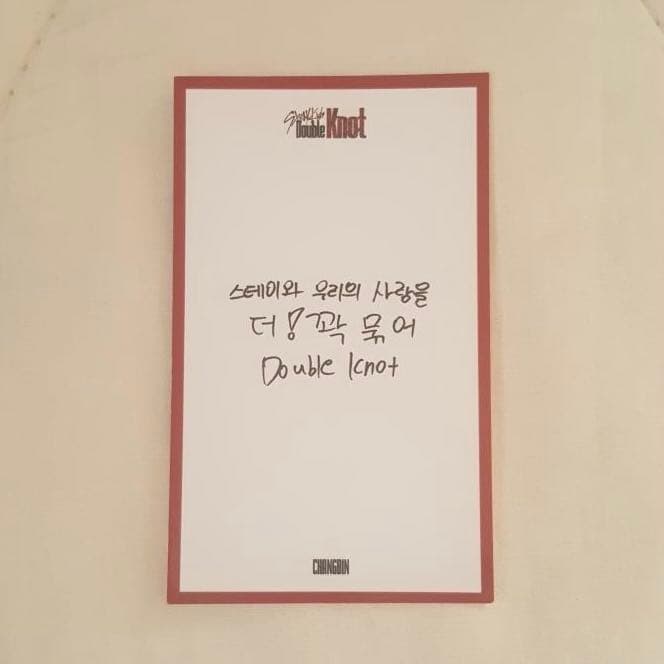 Stray Kids
Double Knot
스테이와 우리의 사랑을
더! 꽉 묶어
Double Knot
CHANGBIN